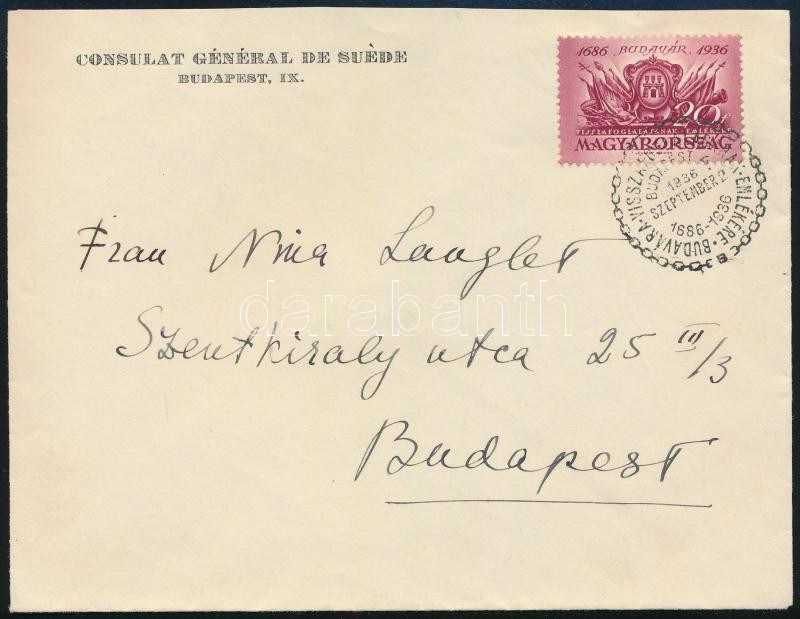 CONSULAT GÉNÉRAL DE SUÈDE
BUDAPEST, IX.
1686. BUDAVÁR. 1936
20
VISSZAFOGLALÁSÁNAK EMLÉKÉRE
MAGYARORSZÁG
BUDAVÁRA EMLÉKÉRE
BUDAPEST 4
1936
SZEPTEMBER 2
1686-1936
Frau Nina Langlet
Szentkiraly utca 25 III/3
Budapest
darabanth